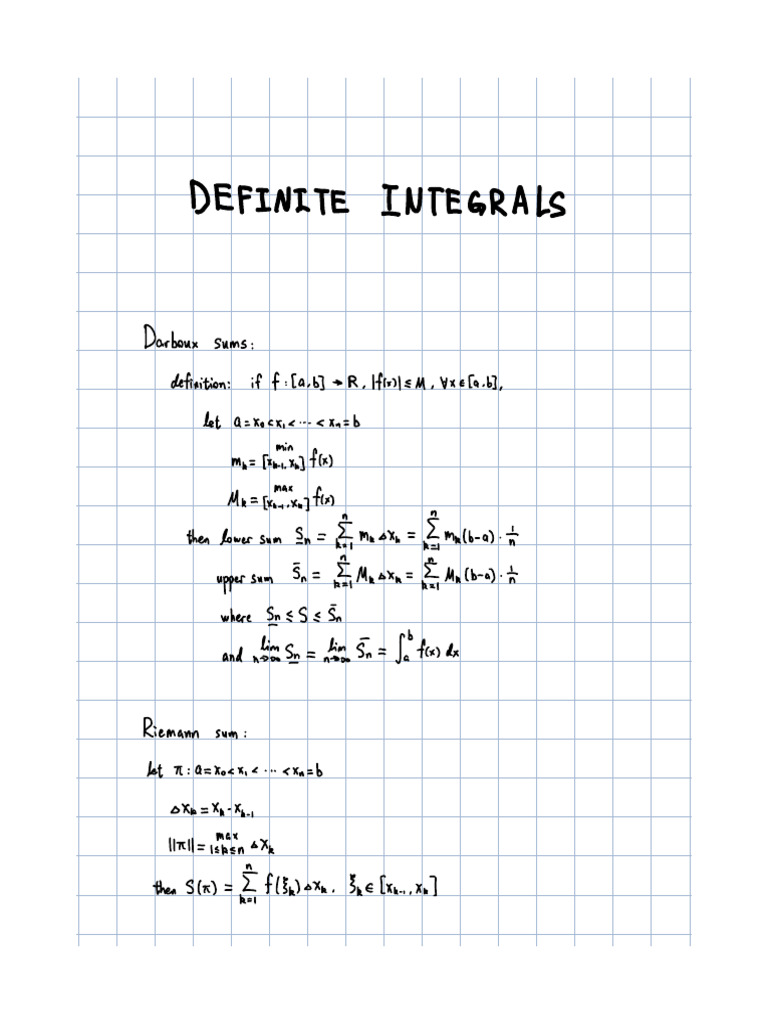 DEFINITE INTEGRALS
Darboux sums:
definition: if f:[a,b] → R, |f(x)| ≤ M, ∀x∈[a,b],
let a=x₀<x₁<⋯<xₙ=b
mₖ = min [xₖ₋₁, xₖ] f(x)
Mₖ = max [xₖ₋₁, xₖ] f(x)
then lower sum S̲ₙ = ∑ₖ₌₁ⁿ mₖ△xₖ = ∑ₖ₌₁ⁿ mₖ(b-a)·1/n
upper sum S̄ₙ = ∑ₖ₌₁ⁿ Mₖ△xₖ = ∑ₖ₌₁ⁿ Mₖ(b-a)·1/n
where S̲ₙ ≤ S ≤ S̄ₙ
and lim n→∞ S̲ₙ = lim n→∞ S̄ₙ = ∫ₐᵇ f(x) dx
Riemann sum:
let π: a=x₀<x₁<⋯<xₙ=b
△xₖ = xₖ - xₖ₋₁
||π|| = max 1≤k≤n △xₖ
then S(π) = ∑ₖ₌₁ⁿ f(ξₖ)△xₖ, ξₖ∈[xₖ₋₁, xₖ]